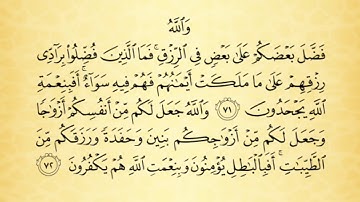 وَٱللَّهُ
فَضَّلَ بَعْضَكُمْ عَلَىٰ بَعْضٍ فِي ٱلرِّزْقِ ۚ فَمَا ٱلَّذِينَ فُضِّلُوا۟ بِرَآدِّي
رِزْقِهِمْ عَلَىٰ مَا مَلَكَتْ أَيْمَٰنُهُمْ فَهُمْ فِيهِ سَوَآءٌ ۚ أَفَبِنِعْمَةِ
ٱللَّهِ يَجْحَدُونَ ٧١ وَٱللَّهُ جَعَلَ لَكُم مِّنْ أَنفُسِكُمْ أَزْوَٰجًا
وَجَعَلَ لَكُم مِّنْ أَزْوَٰجِكُم بَنِينَ وَحَفَدَةً وَرَزَقَكُم مِّنَ
ٱلطَّيِّبَٰتِ ۚ أَفَبِٱلْبَٰطِلِ يُؤْمِنُونَ وَبِنِعْمَتِ ٱللَّهِ هُمْ يَكْفُرُونَ ٧٢